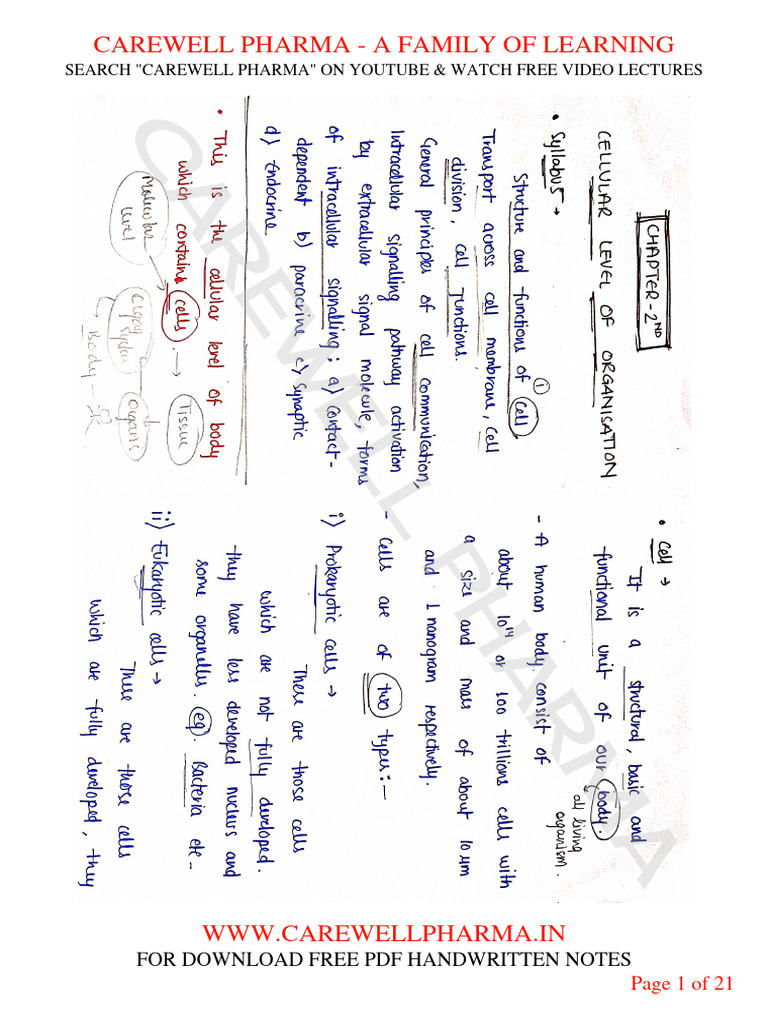 CAREWELL PHARMA - A FAMILY OF LEARNING
SEARCH "CAREWELL PHARMA" ON YOUTUBE & WATCH FREE VIDEO LECTURES
CHAPTER-2ND
CELLULAR LEVEL OF ORGANISATION
• Syllabus →
Structure and functions of cell, ①
Transport across cell membrane, cell
division, cell junctions.
General principles of cell communication,
Intracellular signalling pathway activation
by extracellular signal molecule, forms
of intracellular signalling: a) contact-
dependent b) paracrine c) synaptic
d) Endocrine
• This is the cellular level of body
which contains cells → Tissue
Molecular
level
Organ
system
Organs
Body
• Cell →
It is a structural, basic and
functional unit of our body.
all living
organism.
- A human body consist of
about 10¹⁴ or 100 trillions cells with
a size and mass of about 10 µm
and 1 nanogram respectively.
- Cells are of two types:-
i) Prokaryotic cells →
These are those cells
which are not fully developed.
they have less developed nucleus and
some organelles. eg. Bacteria etc-
ii) Eukaryotic cells →
These are those cells
which are fully developed, they
CAREWELL PHARMA
WWW.CAREWELLPHARMA.IN
FOR DOWNLOAD FREE PDF HANDWRITTEN NOTES
Page 1 of 21